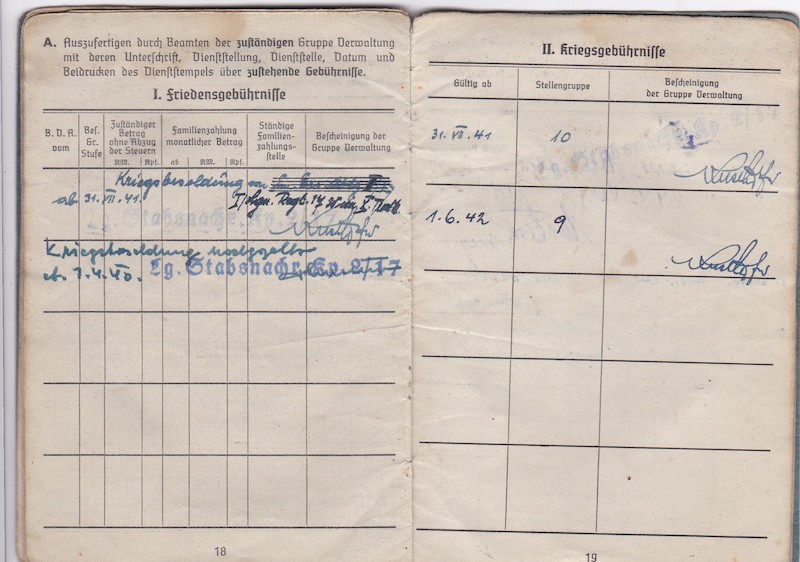 A. Auszufertigen durch Beamten der zuständigen Gruppe Verwaltung
mit deren Unterschrift, Dienststellung, Dienststelle, Datum und
Beidrucken des Dienststempels über zustehende Gebührnisse.
I. Friedensgebührnisse
B. D. A. vom
Bes. Gr. Stufe
Zuständiger Betrag ohne Abzug der Steuern
RM. Rpf.
Familienzahlung monatlicher Betrag
ab RM. Rpf.
Ständige Familien-zahlungs-stelle
Bescheinigung der Gruppe Verwaltung
Kriegsbesoldung von
ab 31. VII. 41.
Lg. Stabsnachr. Kp. 2/17
Kriegsbesoldung
ab 1.4.40. Lg. Stabsnachr. Kp. 2/17
18
II. Kriegsgebührnisse
Gültig ab
Stellengruppe
Bescheinigung
der Gruppe Verwaltung
31. VII. 41 10
1.6.42 9
19